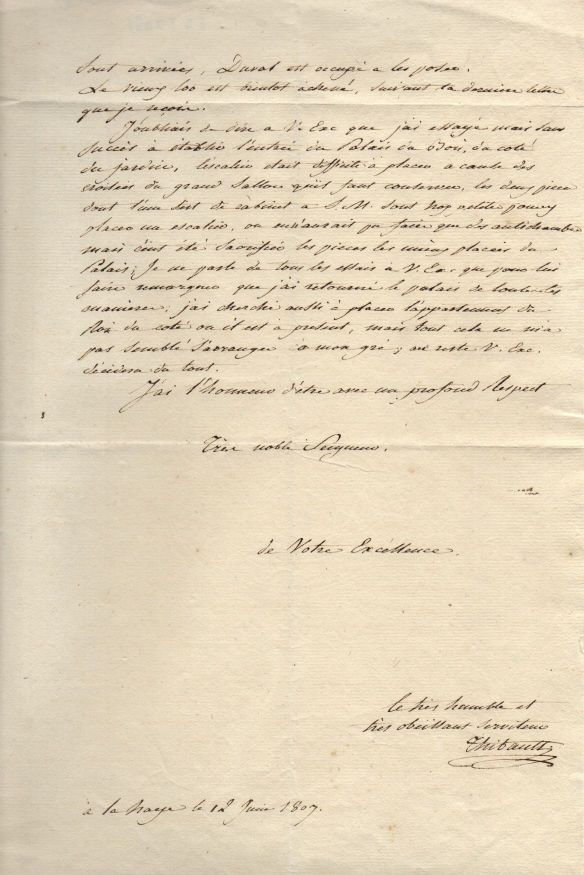 sont arrivées, Duval est occupé a les poser.
Le vieux loo est bientot achevé, suivant la derniere lettre
que je reçois.
J'oubliais de dire a V. Exc que j'ai essayé mais sans
succès a etablir l'entrée du Palais du coté
du jardin, l'escalier etait difficile à placer a cause des
croisées du grand Sallon qu'il faut conserver, les deux pieces
dont l'une sert de cabinet a S. M. sont trop petite pour y
placer un escalier, on n'aurait pu faire que des antichambre
mais c'eut été sacrifier les pieces les mieux placées du
Palais; Je ne parle de tous les essais a V. Exc. que pour lui
faire remarquer que j'ai retourné le palais de toute les
manieres; j'ai cherché aussi à placer l'appartement du
Roi du coté ou il est a present, mais tout cela ne m'a
pas semblé s'arranger a mon gré; au reste V. Exc.
décidera du tout.
J'ai l'honneur d'être avec un profond Respect
Très noble Seigneur.
de Votre Excellence.
le très humble et
très obeissant serviteur
Thibault
à la haye le 12 Juin 1807.